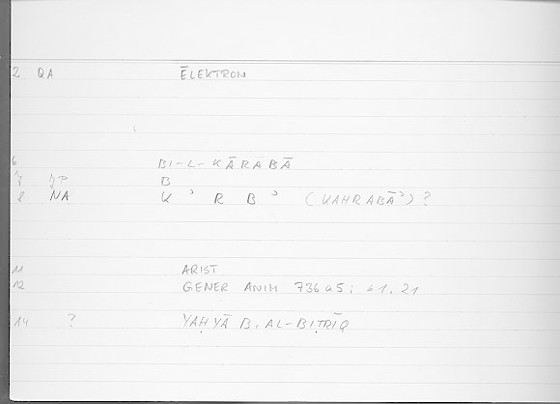 2 QA ĒLEKTRON
6 BI-L-KĀRABĀ
7 B
8 NA K ʾ R B ʾ (KAHRABĀʾ)?
11 ARIST
12 GENER ANIM 736 a5; 21
14 ? YAḤYĀ B. AL-BIṬRĪQ